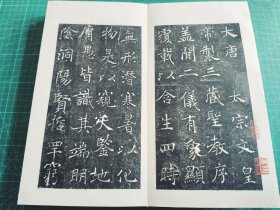 大唐太宗文皇
帝製三藏聖教序
蓋聞二儀有象顯
覆載以含生四時
無形潛寒暑以化
物是以窺天鑒地
庸愚皆識其端明
陰洞陽賢哲罕窮